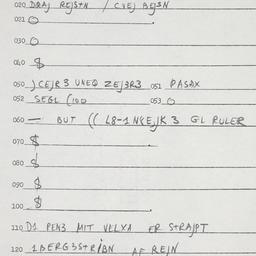 020 DRAJ REJSTN / CVEJ BEJSN
021 O
030 O
040 $
050 JCEJR3 UNEQ ZEJ3R3 051 PASAX
052 SEGL (100 053 O
060 — BUT
GL RULER
070 $
080 $
090 $
100 $
110 D1 PEN3 MIT VELXA ER STRAJPT
120 1BERG3STRIBN AF REJN